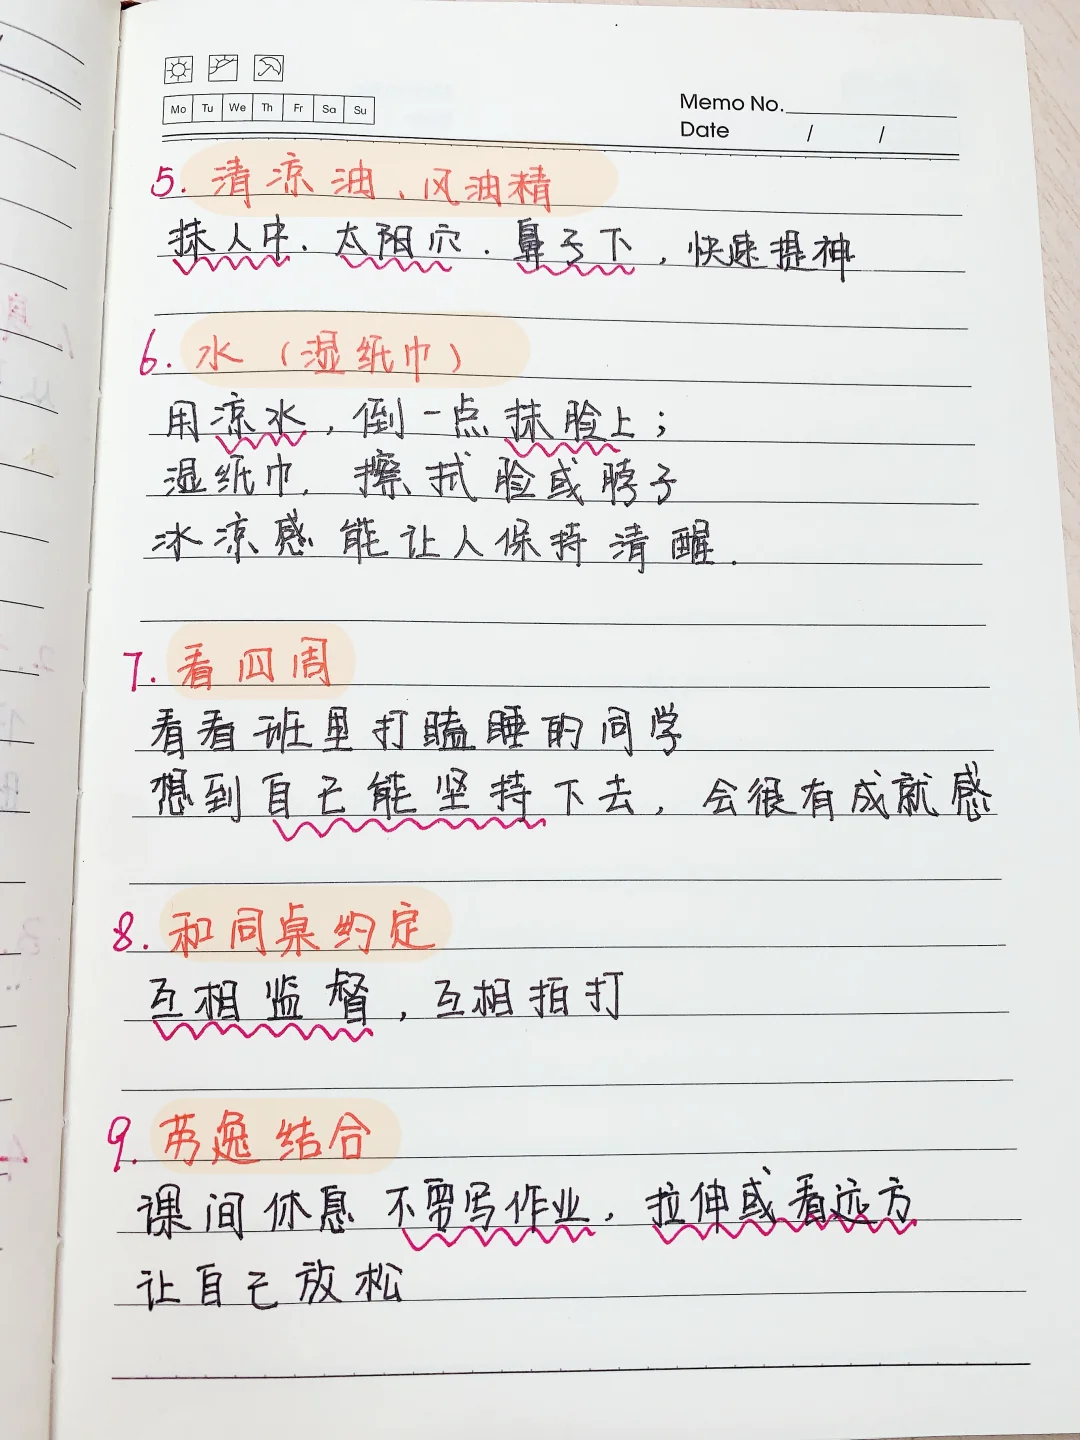 Mo Tu We Th Fr Sa Su
Memo No.
Date / /
5. 清凉油、风油精
抹人中、太阳穴、鼻子下，快速提神
6. 水（湿纸巾）
用凉水，倒一点抹脸上；
湿纸巾，擦拭脸或脖子
冰凉感能让人保持清醒.
7. 看四周
看看班里打瞌睡的同学
想到自己能坚持下去，会很有成就感
8. 和同桌约定
互相监督，互相拍打
9. 劳逸结合
课间休息不需写作业，拉伸或看远方
让自己放松